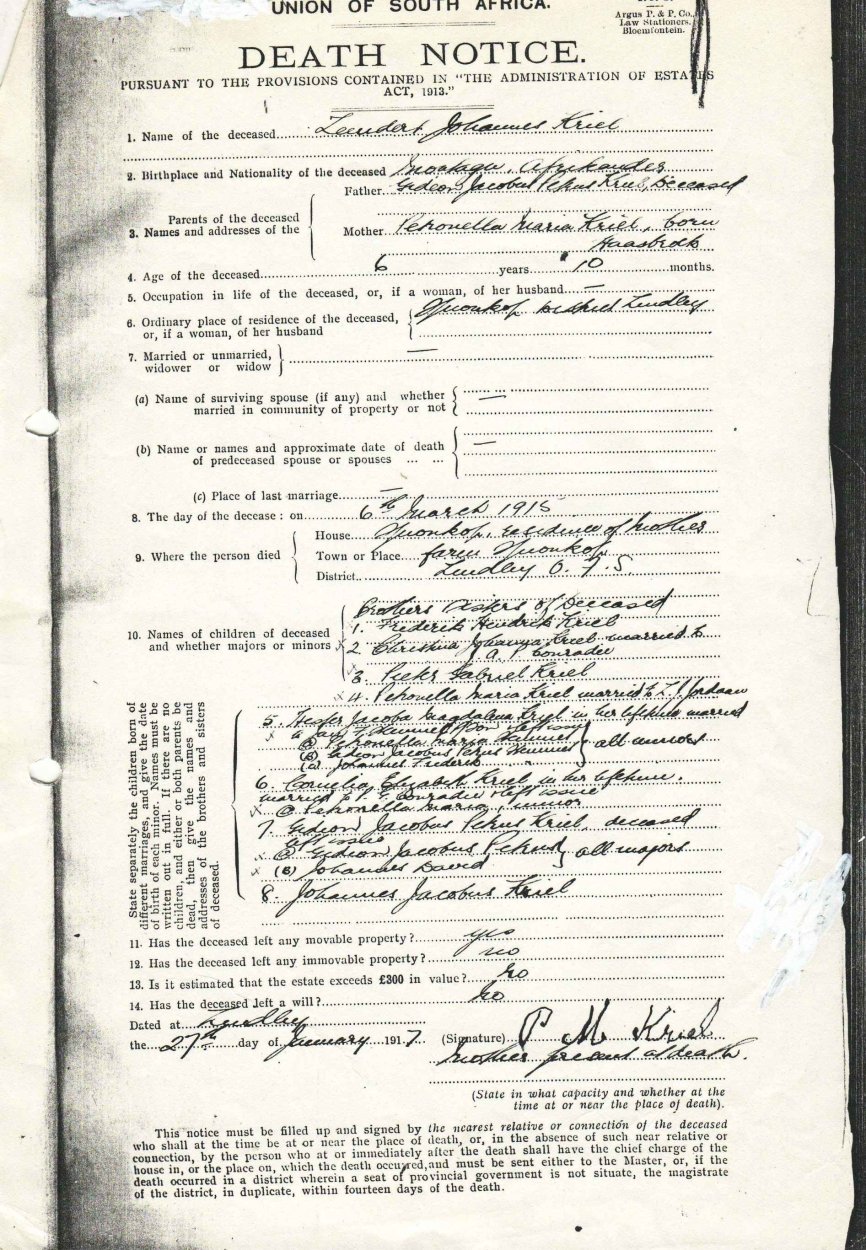 UNION OF SOUTH AFRICA.
Argus P. & P. Co.,
Law Stationers.
Bloemfontein.
DEATH NOTICE.
PURSUANT TO THE PROVISIONS CONTAINED IN "THE ADMINISTRATION OF ESTATES
ACT, 1913."
1. Name of the deceased Leendert Johannes Kriel
2. Birthplace and Nationality of the deceased Afrikander
Father Gideon Jacobus Petrus Kriel, Deceased
Parents of the deceased
3. Names and addresses of the
Mother Petronella Maria Kriel, born
Haasbroek
4. Age of the deceased 6 years 10 months.
5. Occupation in life of the deceased, or, if a woman, of her husband —
6. Ordinary place of residence of the deceased, district Lindley
or, if a woman, of her husband
7. Married or unmarried, —
widower or widow
(a) Name of surviving spouse (if any) and whether —
married in community of property or not
(b) Name or names and approximate date of death —
of predeceased spouse or spouses ... ...
(c) Place of last marriage —
8. The day of the decease: on 6th March 1915
House residence of mother
9. Where the person died Town or Place farm
District Lindley O. F. S
Brothers & sisters of Deceased
10. Names of children of deceased 1. Frederik Hendrik Kriel
and whether majors or minors x 2 Christina Johanna Kriel married to
Conradie
x 3 Pieter Gabriel Kriel
x 4. Petronella Maria Kriel married to L. J. Jordaan
State separately the children born of
different marriages, and give the date
of birth of each minor. Names must be
written out in full. If there are no
children, and either or both parents be
dead, then give the names and
addresses of the brothers and sisters
of deceased.
5. Hester Jacoba Magdalena Kriel in her lifetime married
left issue
Petronella Maria
Gideon Jacobus Petrus all minors
Johannes Frederik
6. Cornelia Elizabeth Kriel in her lifetime,
married to Conradie & left issue
x Petronella Maria, minor
7. Gideon Jacobus Petrus Kriel, deceased
left issue
x Gideon Jacobus Petrus all majors
x (B) Johannes David
8. Johannes Jacobus Kriel
11. Has the deceased left any movable property? yes
12. Has the deceased left any immovable property? no
13. Is it estimated that the estate exceeds £300 in value? No
14. Has the deceased left a will? No
Dated at Lindley
the 27th day of January 1917 (Signature) P M Kriel
Mother present at death.
(State in what capacity and whether at the
time at or near the place of death).
This notice must be filled up and signed by the nearest relative or connection of the deceased
who shall at the time be at or near the place of death, or, in the absence of such near relative or
connection, by the person who at or immediately after the death shall have the chief charge of the
house in, or the place on, which the death occurred, and must be sent either to the Master, or, if the
death occurred in a district wherein a seat of provincial government is not situate, the magistrate
of the district, in duplicate, within fourteen days of the death.